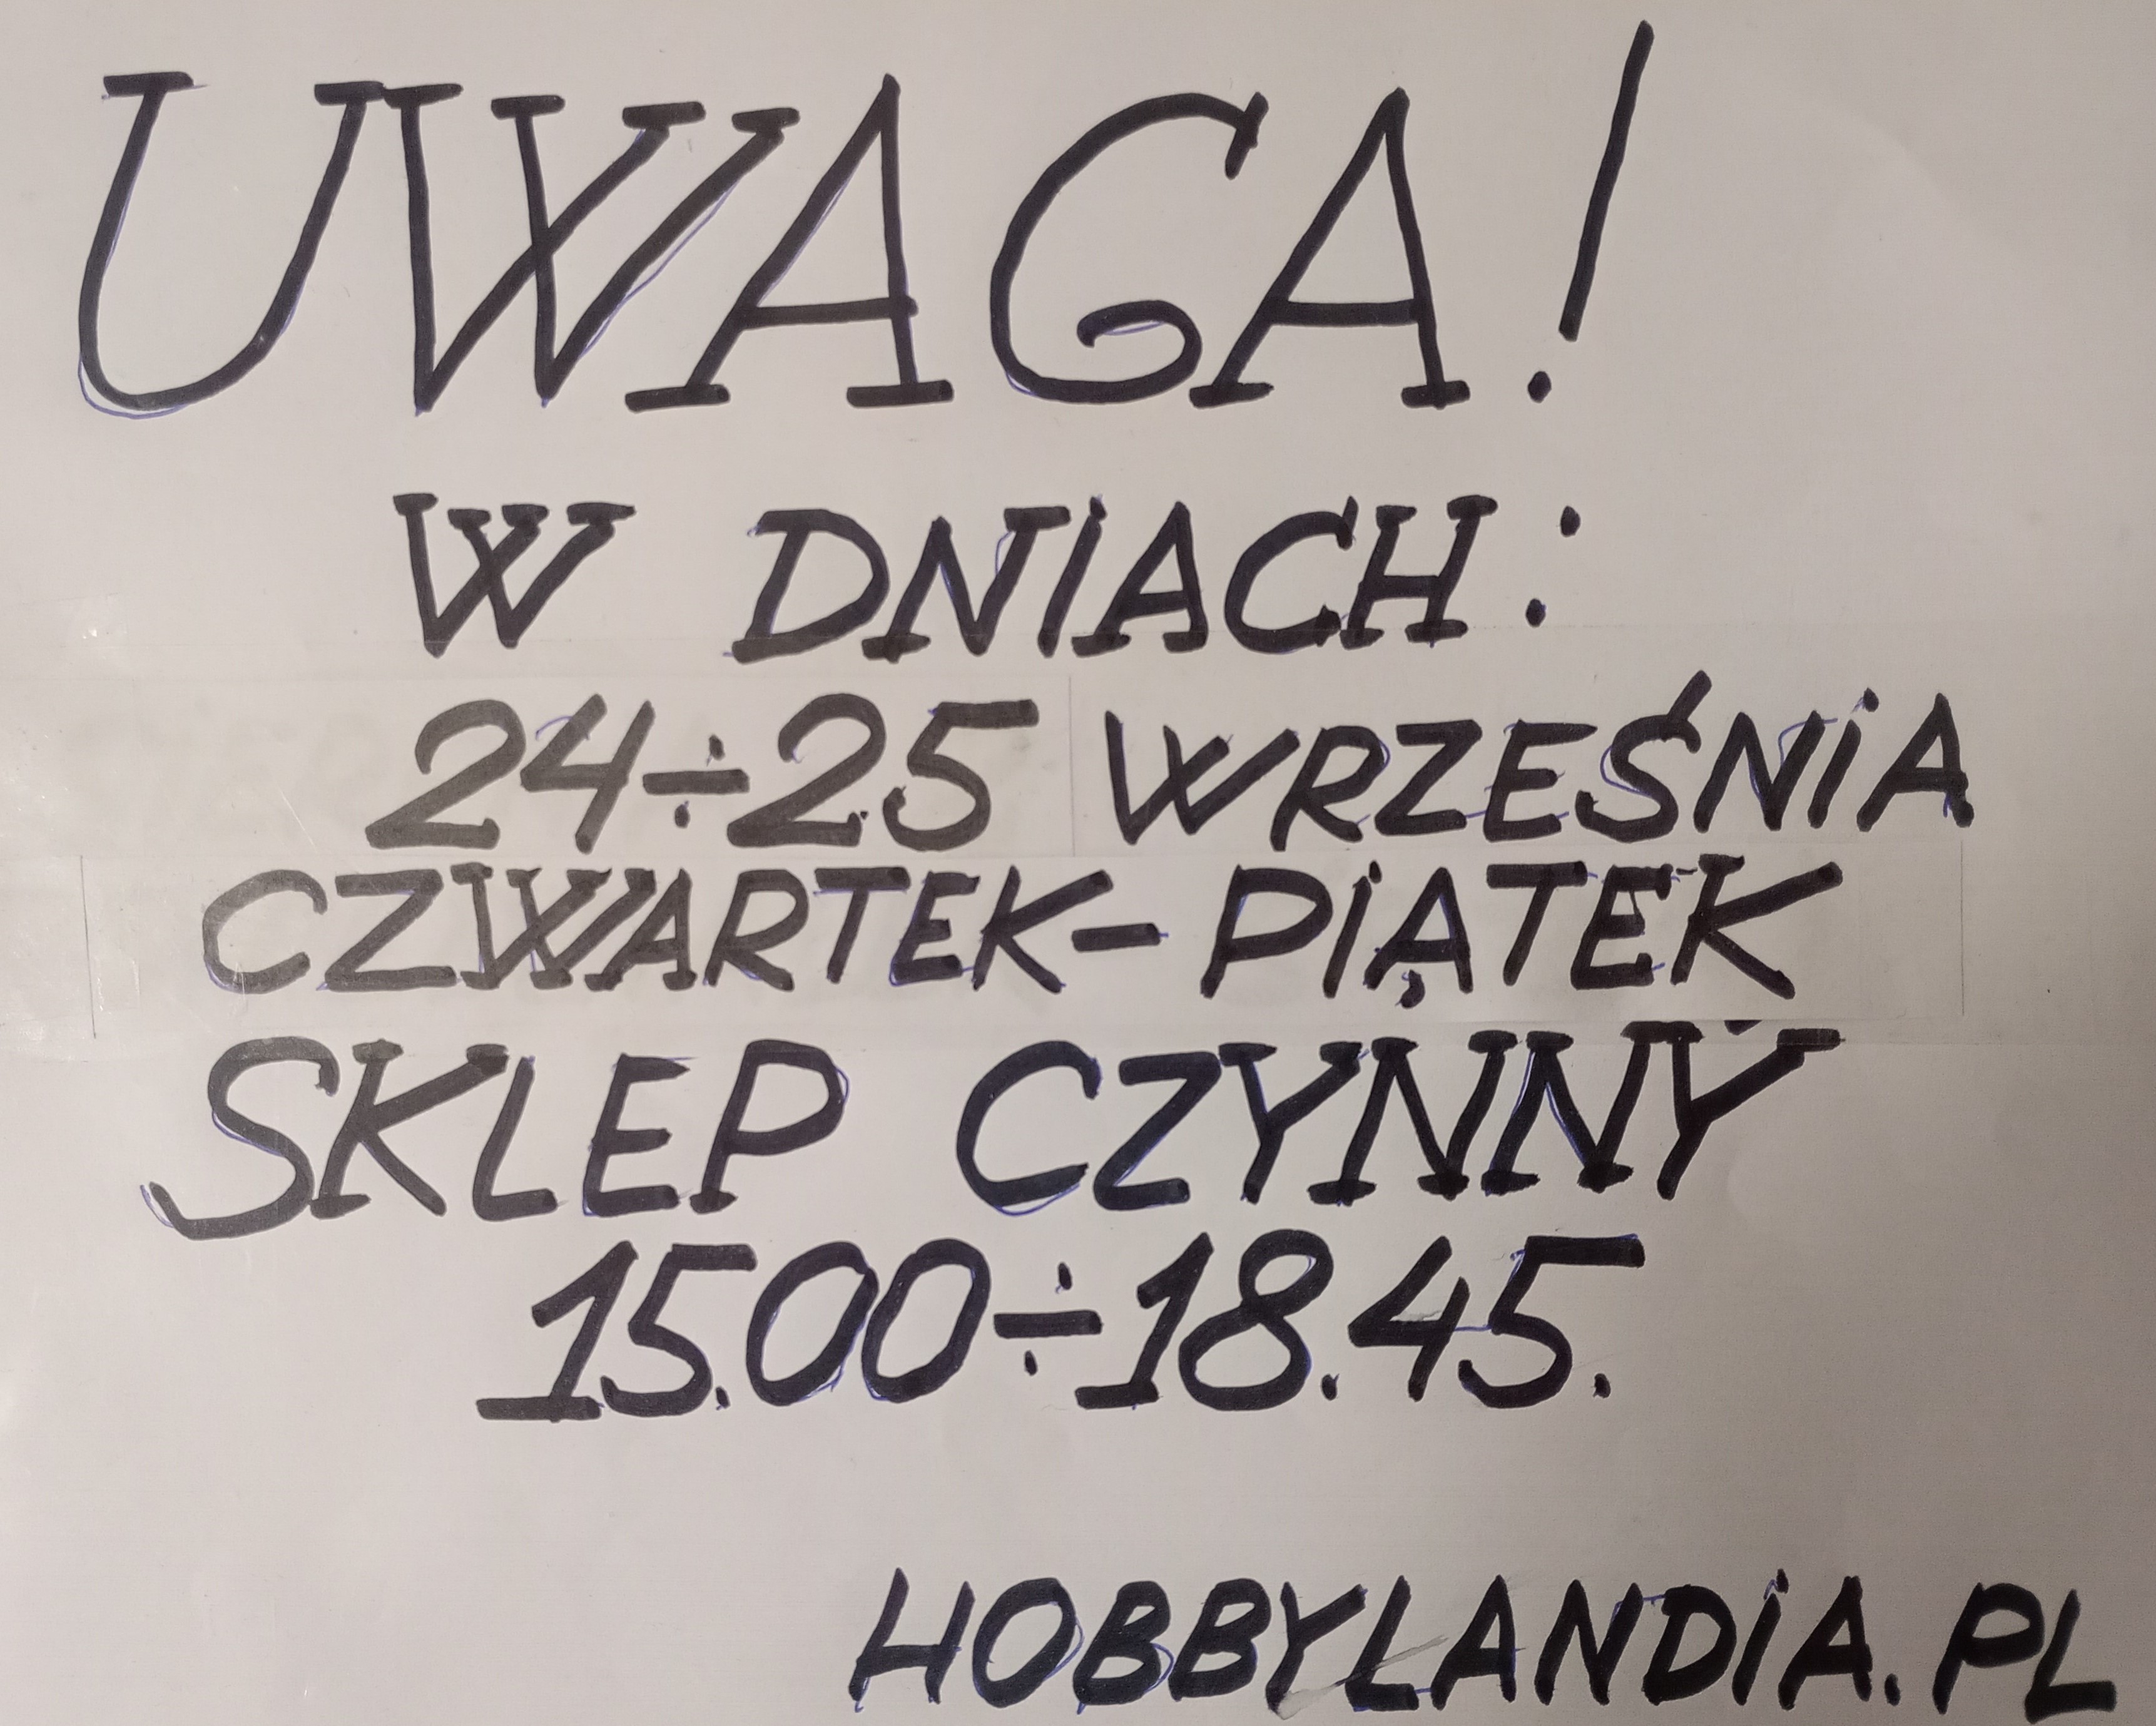 UWAGA!
W DNIACH:
24÷25 WRZEŚNIA
CZWARTEK-PIĄTEK
SKLEP CZYNNY
15.00÷18.45.
HOBBYLANDIA.PL